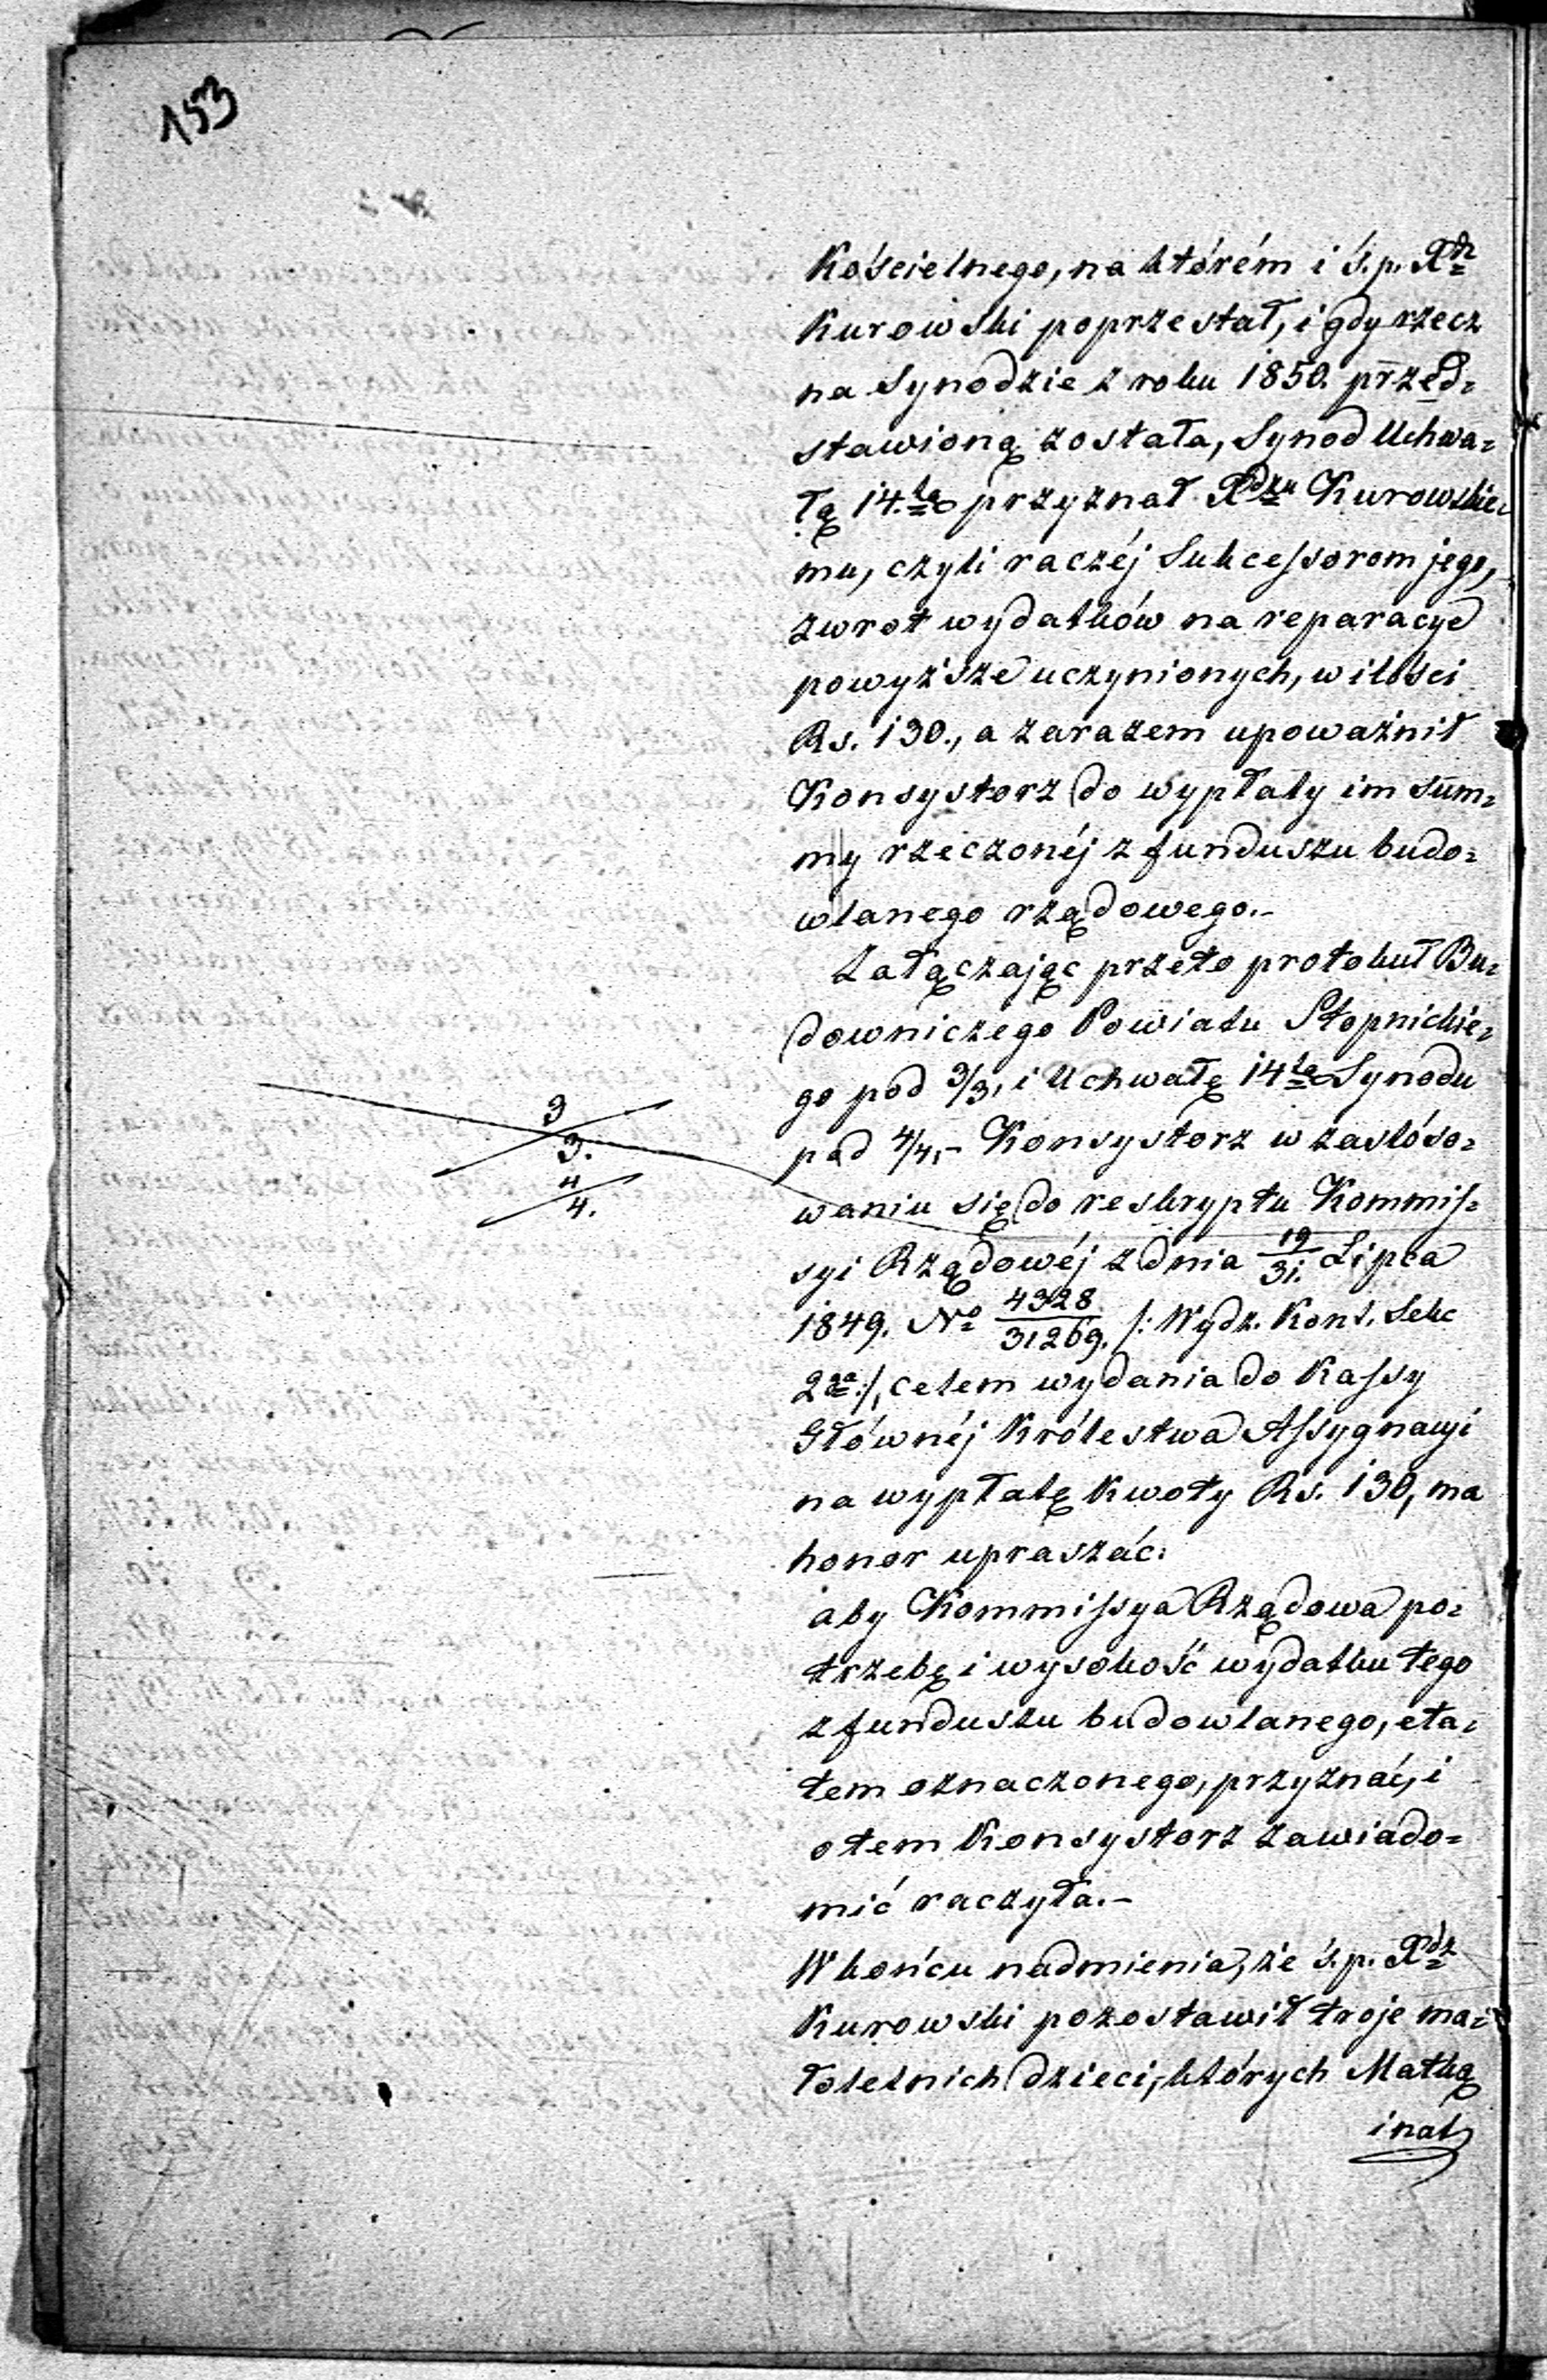 153
Kościelnego, na którém i ś. p. Xdz
Kurowski poprzestał, i gdy rzecz
na Synodzie z roku 1850. przed=
stawioną została, Synod Uchwa=
łą 14.tą przyznał Xdzu Kurowskie=
mu, czyli raczéj Sukcessorom jego,
zwrot wydatków na reparacye
powyższe uczynionych, w ilości
Rs. 130., a zarazem upoważnił
Konsystorz do wypłaty im sum=
my rzeczonéj z funduszu budo=
wlanego rządowego.–
Załączając przeto protokuł Bu=
downiczego Powiatu Stopnickie=
go pod 3/3, i Uchwałę 14tą Synodu
pod 4/4,– Konsystorz w zastóso=
waniu się do reskryptu Kommis=
syi Rządowéj z dnia 19/31. Lipca
1849. No 4328/31269. /: Wydz. Kont. Sekc
2ga :/, celem wydania do Kassy
Głównéj Królestwa Assygnacyi
na wypłatę kwoty Rs. 130, ma
honor upraszać:
aby Kommissya Rządowa po=
trzebę i wysokość wydatku tego
z funduszu budowlanego, eta=
tem oznaczonego, przyznać, i
o tem Konsystorz zawiado=
mić raczyła.–
W końcu nadmienia, że ś. p. Xdz
Kurowski pozostawił troje ma=
łoletnich dzieci, których Matką
3/3.
4/4.